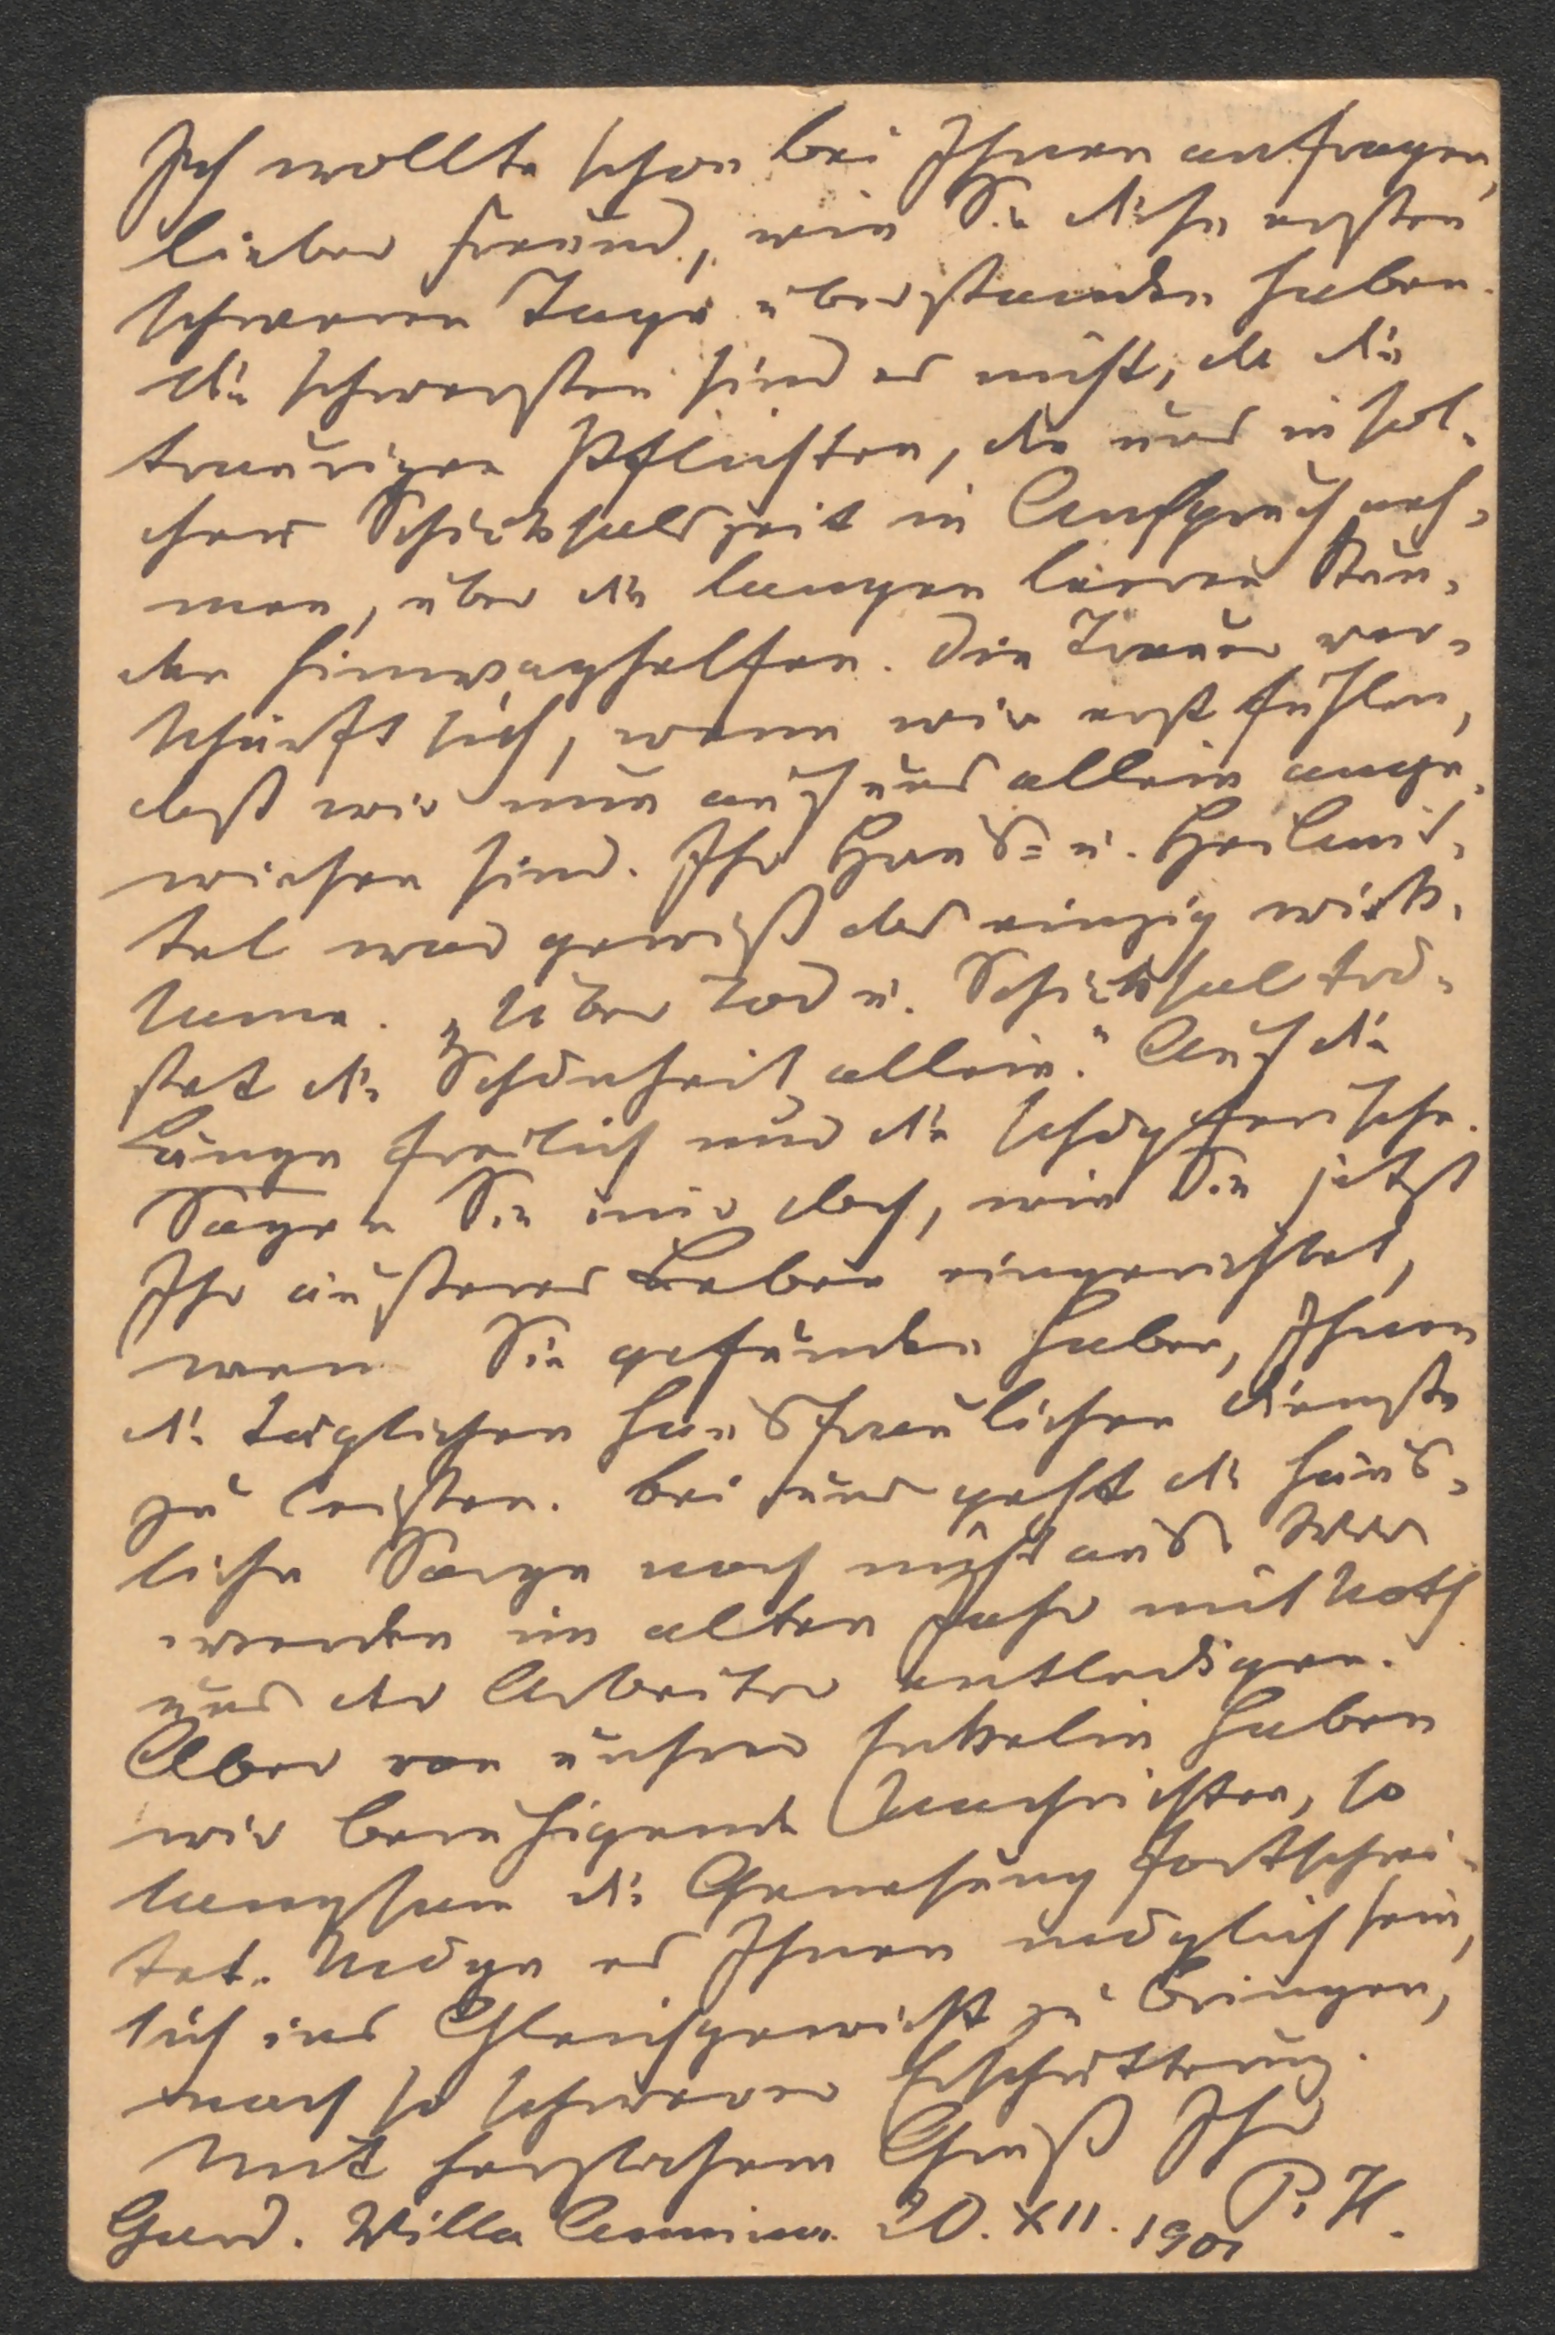 Ich wollte schon bei Ihnen anfragen,
lieber Freund, wie Sie diese ersten
schweren Tage überstanden haben.
Die schwersten sind es nicht, da die
traurigen Pflichten, die uns in sol-
cher Schicksalszeit in Anspruch neh-
men, über die langen leeren Stun-
den hinweghelfen. Die Trauer ver-
schärft sich, wenn wir erst fühlen,
daß wir nun auf uns allein ange-
wiesen sind. Ihr Haus= u. Heilmit-
tel war gewiß das einzig wirk-
same. „Über Tod u. Schicksal trö-
stet die Schönheit allein." Auf die
Länge freilich nur die schöpferische.
Sagen Sie mir doch, wie Sie jetzt
Ihr äußeres Leben eingerichtet,
wen Sie gefunden haben, Ihnen
die täglichen hausfraulichen Dienste
zu leisten. Bei uns geht die häus-
liche Sorge noch nicht aus. Wir
werden im alten Jahr mit Noth
uns der Arbeiter entledigen.
Aber von unsrer Enkelin haben
wir beruhigende Nachrichten, so
langsam die Genesung fortschrei-
tet. Möge es Ihnen möglich sein,
sich ins Gleichgewicht zu bringen,
nach so schwerer Erschütterung.
Mit herzlichem Gruß Ihr
P. H.
Gard. Villa Annina. 20. XII. 1901